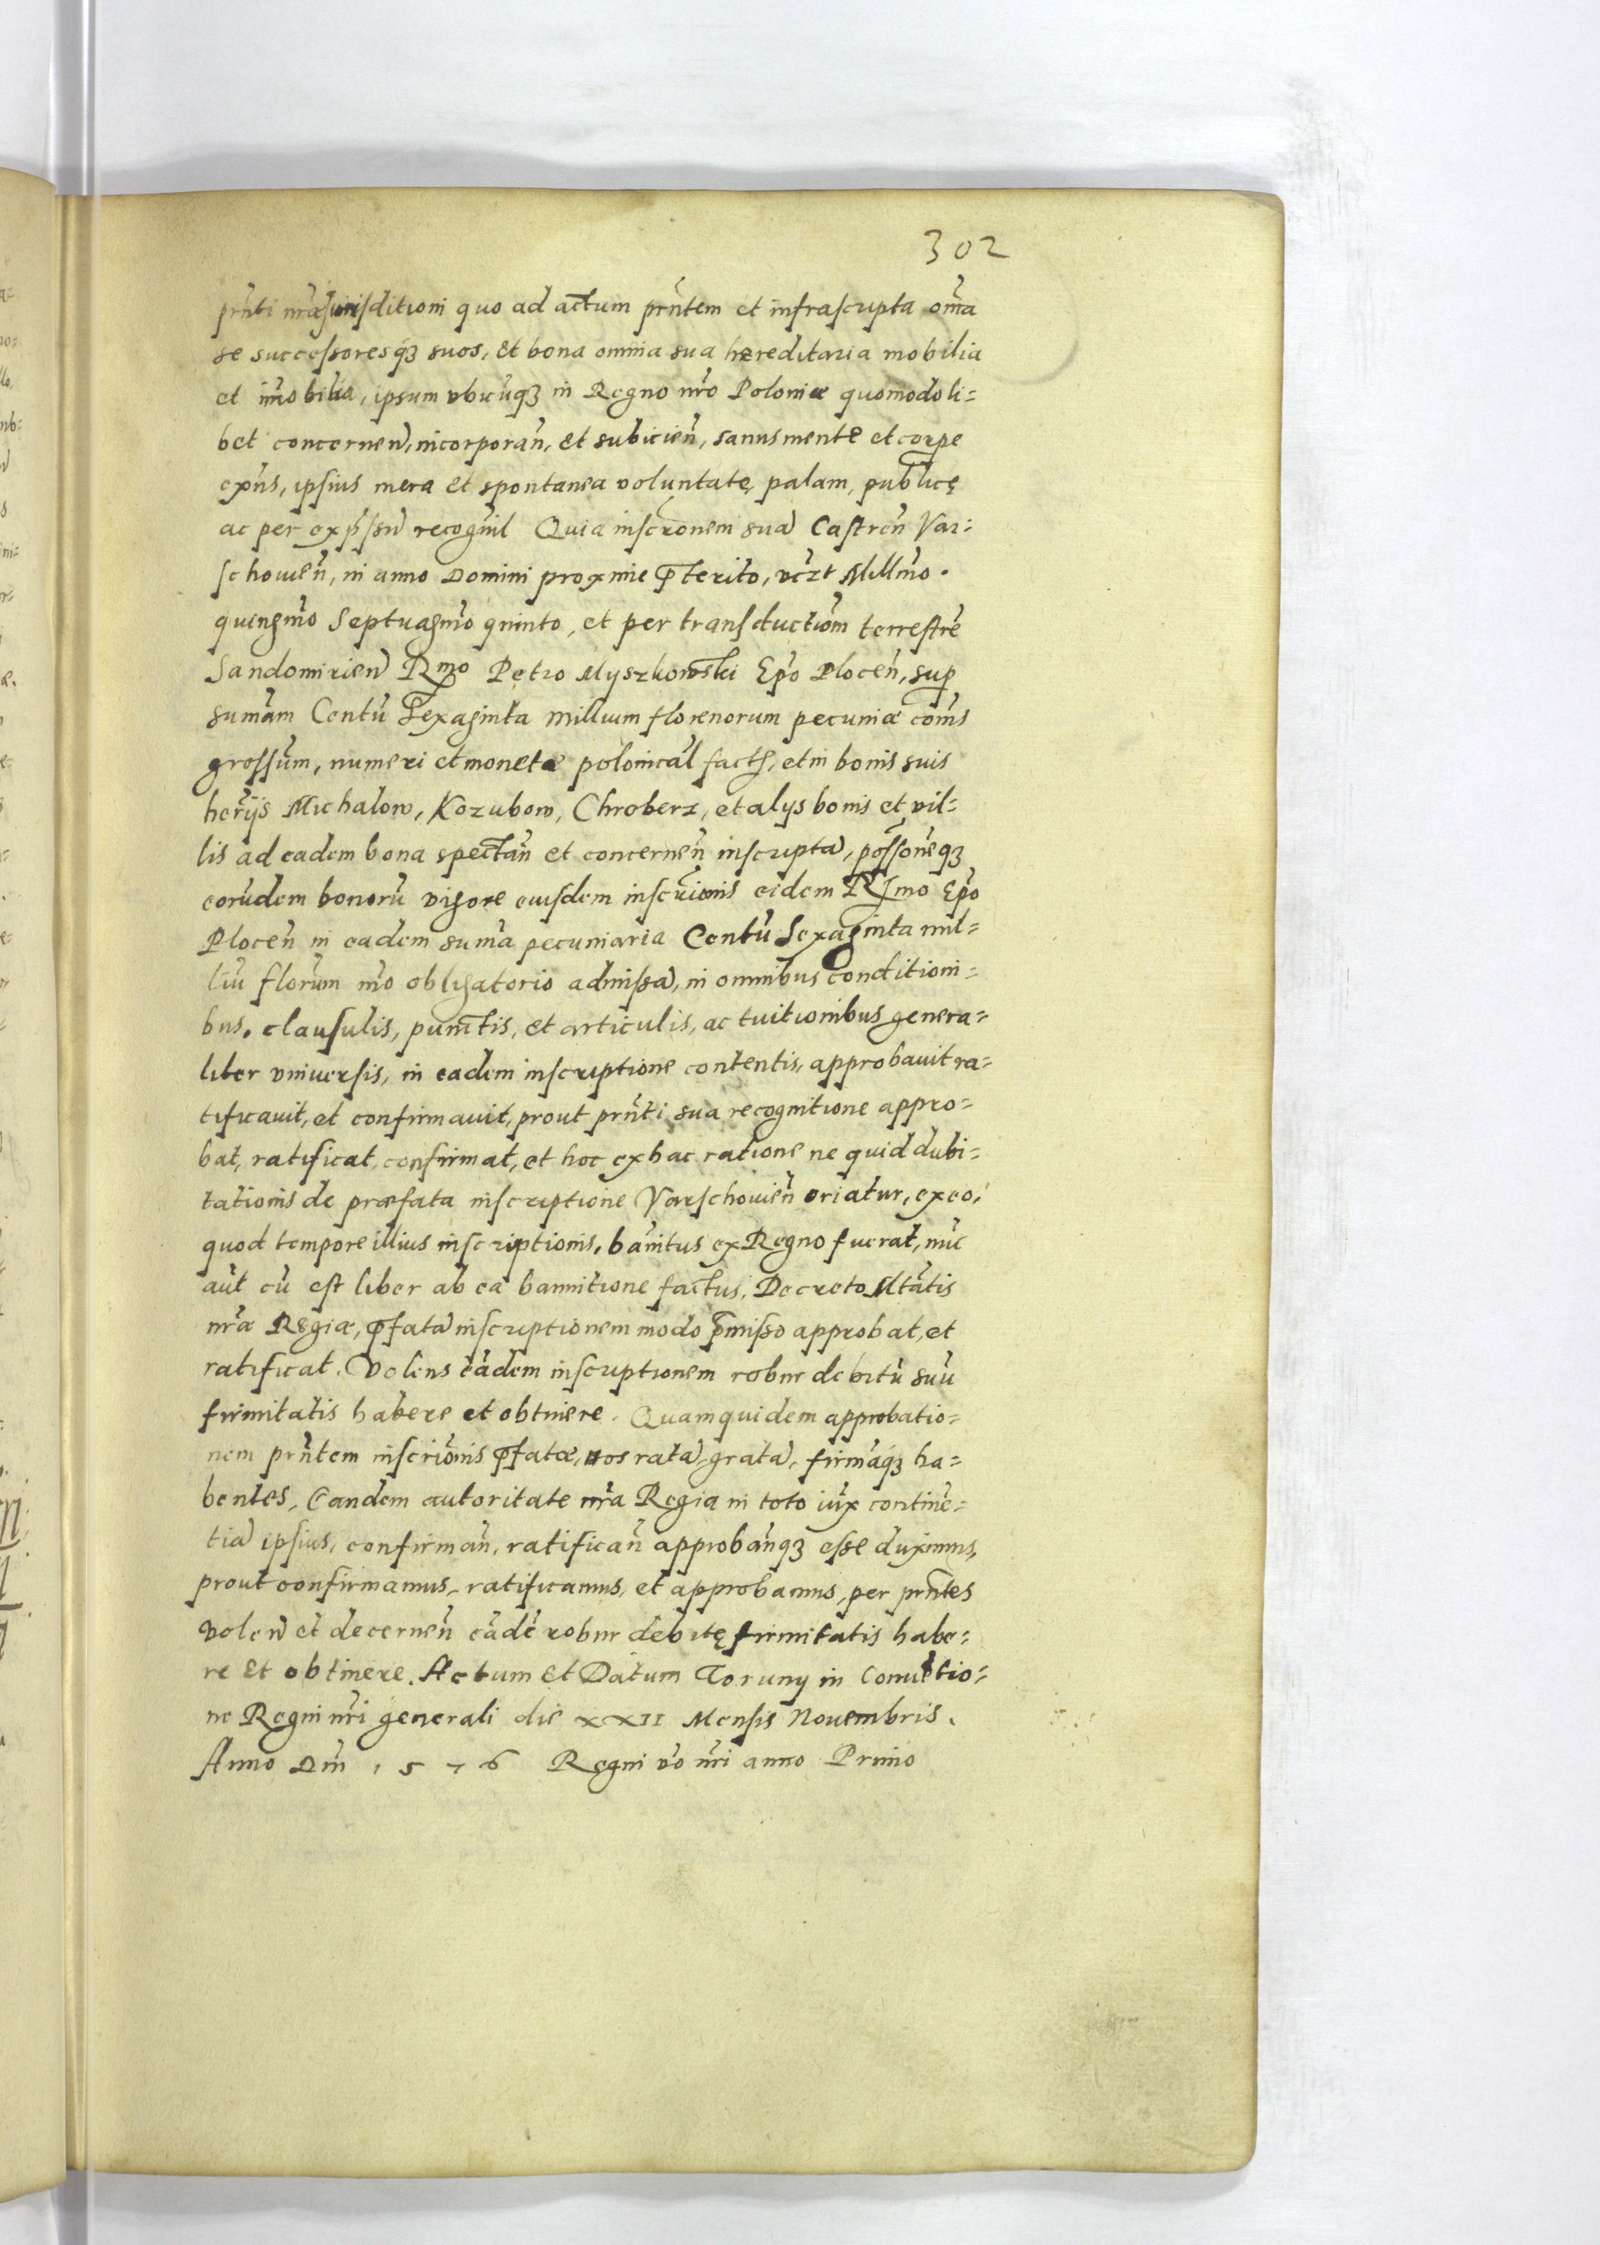 302
prñti nrãe jurisditioni quo ad actum prñtem et infrascripta om̃a
se successoresq̃ suos, et bona omnia sua hereditaria mobilia
et im̃obilia, ipsum vbicũq̃ in Regno nrõ Poloniæ quomodoli=
bet concerneñ, incorporañ, et subicieñ, sanus mente et corpe
exñs, ipsius mera et spontanea voluntate, palam, publicę
ac per exp̃ssũ recoguit Quia inscrõnem suã Castreñ Var=
schouieñ, in anno Domini proxime p̃terito, vc̃zt Millm̃o.
quingm̃o Septuagm̃o quinto, et per transductiõm terrestrẽ
Sandomirieñ Rmo Petro Myszkowski Ep̃o Ploceñ, sup
sum̃am Centũ Sexaginta millium florenorum pecuniæ com̃s
grossũm, numeri et monetæ polonical̃ fact̃, et in bonis suis
herijs̃ Michalow, Kozubow, Chroberz, et alys bonis et vil=
lis ad eadem bona spectañ et concerneñ inscriptã, possõneq̃
eorũdem bonorũ vigore eiusdem inscriõnis eidem Rſmo Ep̃o
Ploceñ in eadem sum̃a pecuniaria Centũ Sexaginta mil=
liũ florũm mõ obligatorio admissã, in omnibus conditioni=
bus, clausulis, punctis, et articulis, ac tuitionibus genera=
liter vniuersis, in eadem inscriptione contentis, approbauit ra=
tificauit, et confirmauit, prout prñti sua recognitione appro=
bat, ratificat, confirmat, et hoc ex hac ratione ne quid dubi=
tationis de præfata inscriptione Varschouieñ oriatur, ex eo,
quod tempore illius inscriptionis, bañitus ex Regno fuerat, nũc
aũt cũ est liber ab ea bannitione factus, Decreto Mtãtis
nrãe Regiæ, p̃fatã inscriptionem modo p̃misso approbat, et
ratificat. Volens eãdem inscriptionem robur debitũ suũ
firmitatis habere et obtinere. Quamquidem approbatio=
nem prñtem inscriõnis p̃fatæ, nos ratã, gratã, firmãq̃ ha=
bentes, Eandem autoritate nrã Regia in toto iũx continẽ=
tiã ipsius, confirmañ, ratificañ approbañq̃ esse duximus,
prout confirmamus, ratificamus, et approbamus, per prñtes
voleñ et decerneñ eãdẽ robur debitę firmitatis habe=
re et obtinere. Actum et Datum Toruny in Conuẽtio=
ne Regni nrĩ generali die XXII Mensis Nouembris.
Anno Dm̃ 1576 Regni võ nrĩ anno Primo